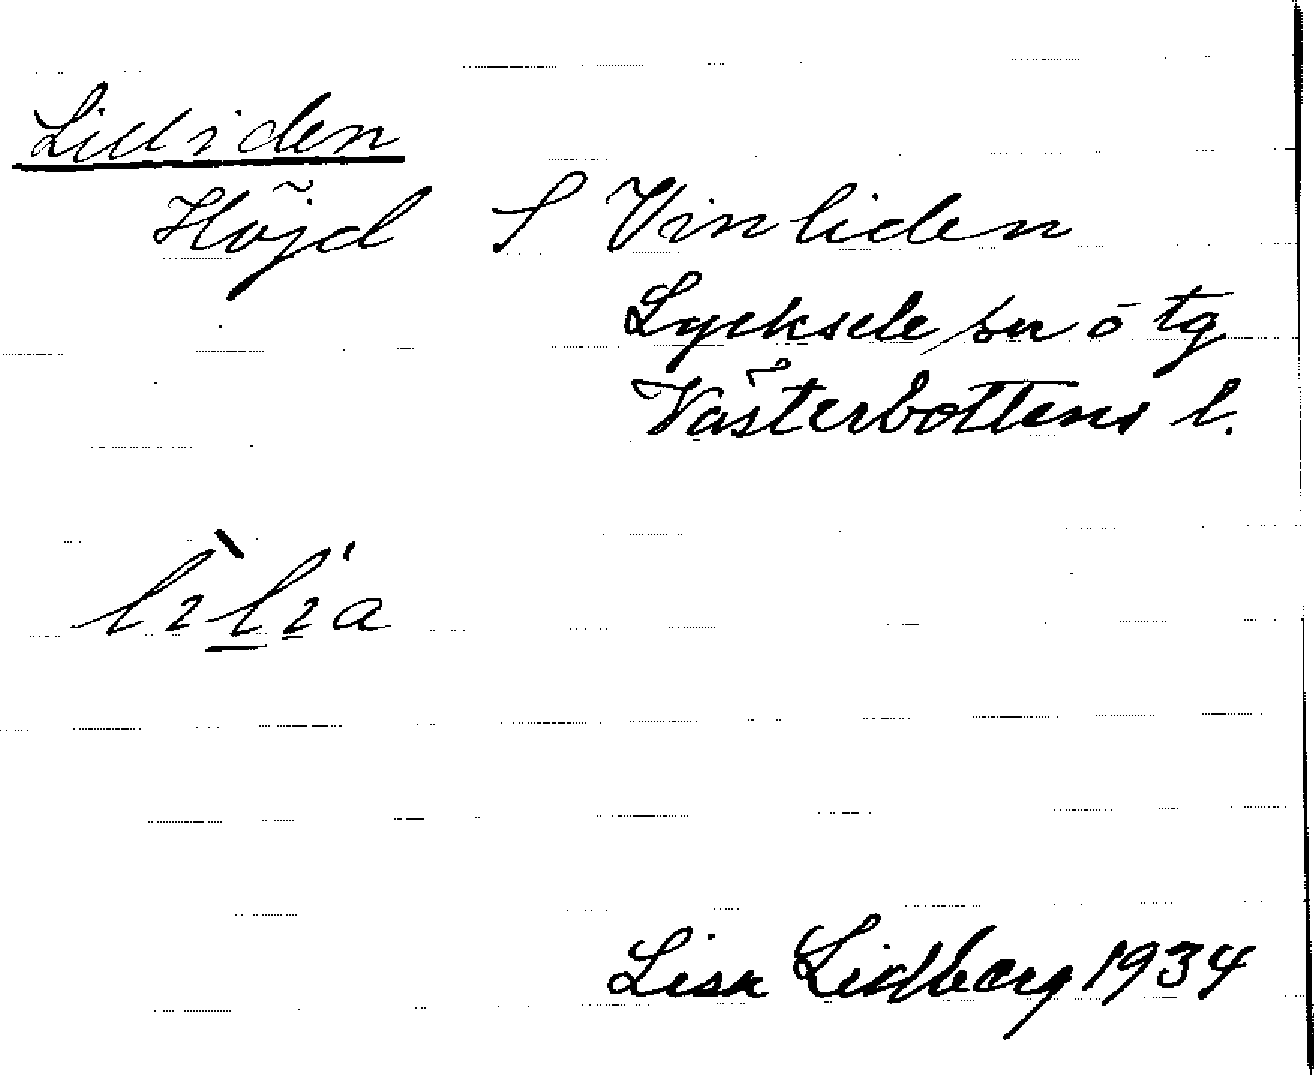 Lilliden
Höjd S Vinliden
Lycksele sn ö tg
Västerbottens l.
Lisa Lidberg 1934